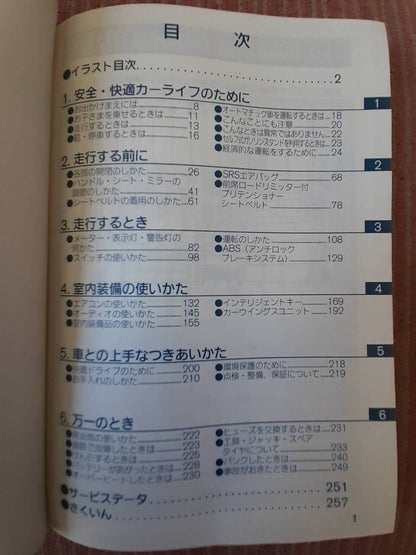 目 次
●イラスト目次 2
1. 安全・快適カーライフのために 1
●お出かけまえには 8
●お子さまを乗せるときは 11
●走行するときは 13
●駐・停車するときは 16
●オートマチック車を運転するときは 18
●こんなことにも注意 20
●こんなときは異常ではありません 22
●セルフ式ガソリンスタンドを利用するときは 23
●経済的な運転をするために 24
2. 走行する前に 2
●各部の開閉のしかた 26
●ハンドル・シート・ミラーの
調節のしかた 41
●シートベルトの着用のしかた 61
●SRSエアバッグ 68
●前席ロードリミッター付
プリテンショナー
シートベルト 78
3. 走行するとき 3
●メーター・表示灯・警告灯の
見かた 82
●スイッチの使いかた 98
●運転のしかた 108
●ABS（アンチロック
ブレーキシステム） 129
4. 室内装備の使いかた 4
●エアコンの使いかた 132
●オーディオの使いかた 145
●室内装備品の使いかた 155
●インテリジェントキー 169
●カーウイングスユニット 192
5. 車との上手なつきあいかた 5
●快適ドライブのために 200
●お手入れのしかた 210
●環境保護のために 218
●点検・整備、保証について 219
6. 万一のとき 6
●発炎筒の使いかた 222
●路上で故障したときは 223
●けん引するときは 225
●バッテリーがあがったときは 228
●オーバーヒートしたときは 230
●ヒューズを交換するときは 231
●工具・ジャッキ・スペア
タイヤについて 233
●パンクしたときは 240
●事故がおきたときは 249
●サービスデータ 251
●さくいん 257
1